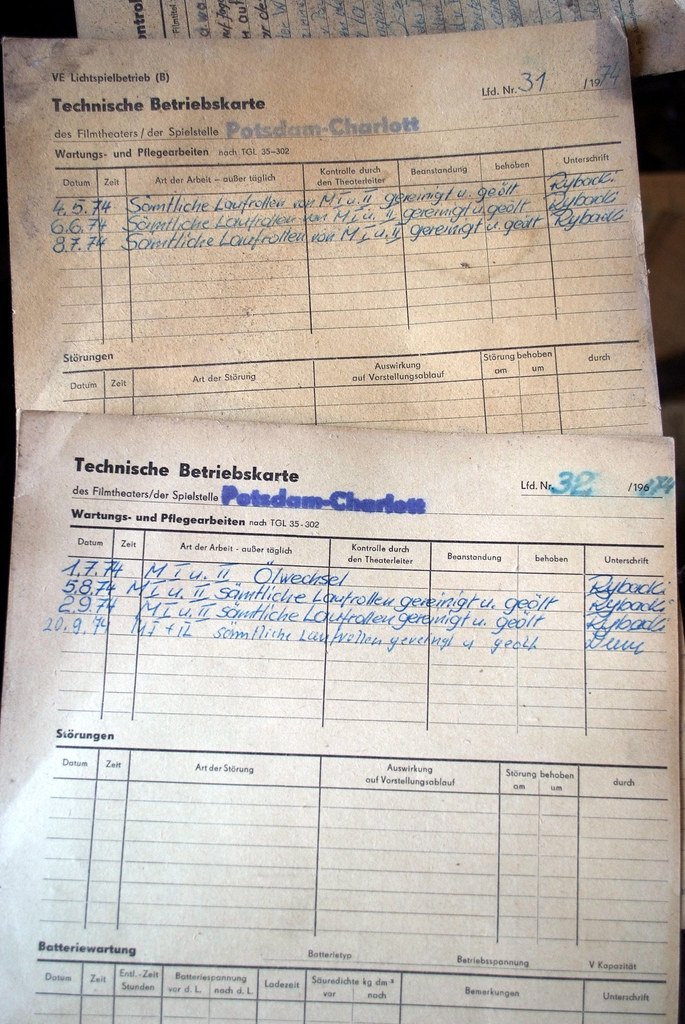 VE Lichtspielbetrieb (B)
Technische Betriebskarte
Lfd. Nr. 31 /1974
des Filmtheaters / der Spielstelle Potsdam-Charlott
Wartungs- und Pflegearbeiten nach TGL 35-302
Datum Zeit Art der Arbeit – außer täglich Kontrolle durch den Theaterleiter Beanstandung behoben Unterschrift
4.5.74 Sämtliche Laufrollen von M I u. II gereinigt u. geölt Rybacki
6.6.74 Sämtliche Laufrollen von M I u. II gereinigt u. geölt Rybacki
8.7.74 Sämtliche Laufrollen von M I u. II gereinigt u. geölt Rybacki
Störungen
Datum Zeit Art der Störung Auswirkung auf Vorstellungsablauf Störung behoben am um durch
Technische Betriebskarte
Lfd. Nr. 32 /196 74
des Filmtheaters/der Spielstelle Potsdam-Charlott
Wartungs- und Pflegearbeiten nach TGL 35-302
Datum Zeit Art der Arbeit - außer täglich Kontrolle durch den Theaterleiter Beanstandung behoben Unterschrift
1.7.74 M I u. II Ölwechsel Rybacki
5.8.74 M I u. II Sämtliche Laufrollen gereinigt u. geölt Rybacki
2.9.74 M I u. II Sämtliche Laufrollen gereinigt u. geölt Rybacki
20.9.74 M I + II sämtliche Laufrollen gereinigt u geölt
Störungen
Datum Zeit Art der Störung Auswirkung auf Vorstellungsablauf Störung behoben am um durch
Batteriewartung Batterietyp Betriebsspannung V Kapazität
Datum Zeit Entl.-Zeit Stunden Batteriespannung vor d. L. nach d. L. Ladezeit Säuredichte kg dm⁻³ vor nach Bemerkungen Unterschrift